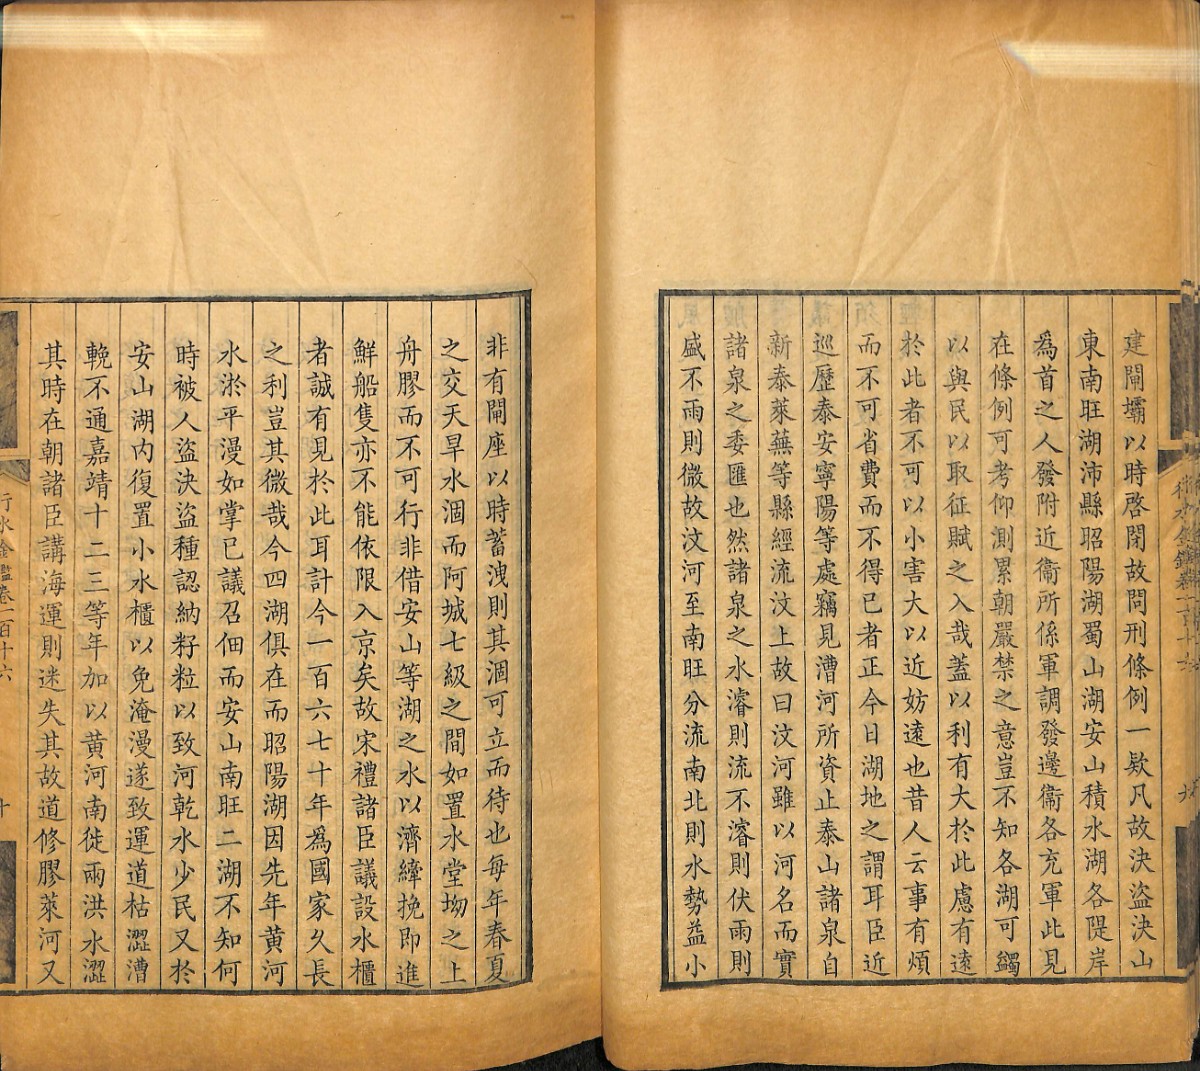 建閘壩以時啓閉故問刑條例一欵凡故決盜決山
東南旺湖沛縣昭陽湖蜀山湖安山積水湖各隄岸
爲首之人發附近衞所係軍調發邊衞各充軍此見
在條例可考仰測累朝嚴禁之意豈不知各湖可蠲
以與民以取征賦之入哉葢以利有大於此慮有遠
於此者不可以小害大以近妨遠也昔人云事有煩
而不可省費而不得已者正今日湖地之謂耳臣近
巡歷泰安寧陽等處竊見漕河所資止泰山諸泉自
新泰萊蕪等縣經流汶上故曰汶河雖以河名而實
諸泉之委匯也然諸泉之水濬則流不濬則伏雨則
盛不雨則微故汶河至南旺分流南北則水勢益小
非有閘座以時蓄洩則其涸可立而待也每年春夏
之交天旱水涸而阿城七級之間如置水堂坳之上
舟膠而不可行非借安山等湖之水以濟縴挽即進
鮮船隻亦不能依限入京矣故宋禮諸臣議設水櫃
者誠有見於此耳計今一百六七十年爲國家久長
之利豈其微哉今四湖俱在而昭陽湖因先年黃河
水淤平漫如掌已議召佃而安山南旺二湖不知何
時被人盜決盜種認納籽粒以致河乾水少民又於
安山湖內復置小水櫃以免淹漫遂致運道枯澀漕
輓不通嘉靖十二三等年加以黃河南徙兩洪水澀
其時在朝諸臣講海運則迷失其故道修膠萊河又
行水金鑑卷一百十六
十